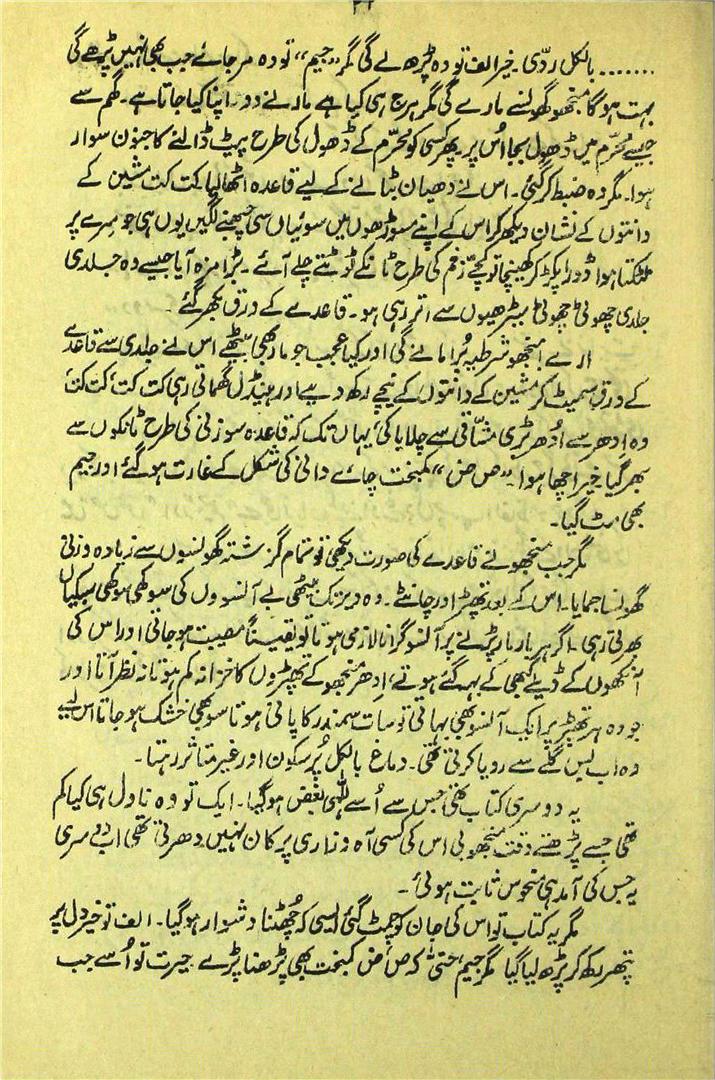 ۳۲
....... بالکل ردّی۔ خیر الف تو وہ پڑھ لے گی مگر ”جیم“ تو وہ مر جائے جب بھی نہیں پڑھے گی
بہت ہوگا منجھو گھونسے مارے گی مگر ہرج ہی کیا ہے مارنے دو۔ اپنا کیا جاتا ہے۔ گھم سے
جیسے محرّم میں ڈھول بجا اُس پر۔ پھر کسی کو محرّم کے ڈھول کی طرح پیٹ ڈالنے کا جنون سوار
ہوا۔ مگر وہ ضبط کر گئی۔ اس نے دھیان بٹانے کے لیے قاعدہ اٹھا لیا کت کت مشین کے
دانتوں کے نشان دیکھ کر اس کے اپنے مسوڑھوں میں سوئیاں سی چبھنے لگیں یوں ہی جو سرے پر
لٹکتا ہوا ڈورا پکڑ کر کھینچا تو کچّے زخم کی طرح ٹانکے ٹوٹتے چلے آئے۔ بڑا مزہ آیا جیسے وہ جلدی
جلدی چھوٹی چھوٹی سیڑھیوں سے اتر رہی ہو۔ قاعدے کے ورق بکھر گئے۔
ارے! منجھو شرطیہ بُرا مانے گی اور کیا عجب جو مار بھی بیٹھے اس نے جلدی سے قاعدے
کے ورق سمیٹ کر مشین کے دانتوں کے نیچے رکھ دیے اور ہینڈل گھماتی رہی کت کت، کت کت،
وہ اِدھر سے اُدھر بڑی مشّاقی سے چلایا کی، یہاں تک کہ قاعدہ سوزنی کی طرح ٹانکوں سے
بھر گیا خیر اچھا ہوا۔ ”ص ض“ کمبخت چائے دانی کی شکل کے غارت ہو گئے اور جیم
بھی مٹ گیا۔
مگر جب منجھو نے قاعدے کی صورت دیکھی تو تمام گزشتہ گھونسوں سے زیادہ وزنی
گھونسا جمایا۔ اس کے بعد تھپڑ اور چانٹے۔ وہ دیر تک بیٹھی بے آنسوؤں کی سوکھی سوکھی سبکیاں
بھرتی رہی۔ اگر ہر بار مار پڑنے پر آنسو گرانا لازمی ہوتا تو یقیناً مصیبت ہو جاتی اور اس کی
آنکھوں کے ڈیلے کبھی کے بہہ گئے ہوتے، اِدھر منجھو کے تھپڑوں کا خزانہ کم ہوتا نہ نظر آتا اور
جو وہ ہر تھپڑ پر ایک آنسو بھی بہاتی تو سات سمندر کا پانی ہوتا سو بھی خشک ہو جاتا اس لیے
وہ اب بس گلے سے رویا کرتی تھی۔ دماغ بالکل پُرسکون اور غیر متاثر رہتا۔
یہ دوسری کتاب تھی جس سے اُسے للّٰہی بغض ہو گیا۔ ایک تو وہ ناول ہی کیا کم
تھی جسے پڑھتے وقت منجھو بی اس کی کسی آہ و زاری پر کان نہیں دھرتی تھی اب دوسری
یہ جس کی آمد ہی منحوس ثابت ہوئی۔
مگر یہ کتاب تو اس کی جان کو چمٹ گئی ایسی کہ چُھٹنا دشوار ہو گیا۔ الف تو خیر دل پر
پتھر رکھ کر پڑھ لیا گیا مگر جیم، حتیٰ کہ ص، ض کمبخت بھی پڑھنا پڑے۔ حیرت تو اُسے جب